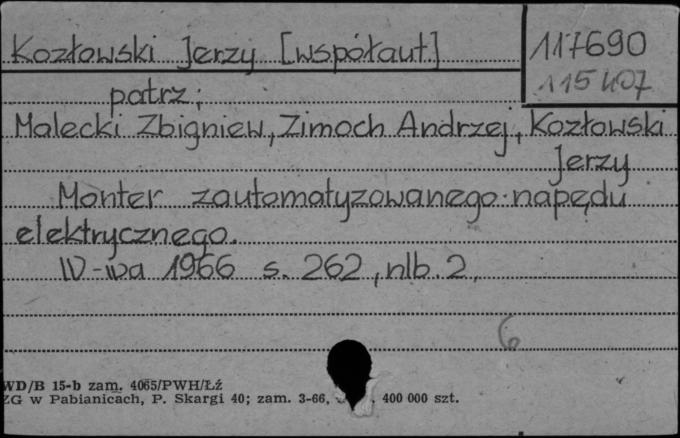 Kozłowski Jerzy [współaut.]
117690
115407
patrz:
Malecki Zbigniew, Zimoch Andrzej, Kozłowski
Jerzy
Monter zautomatyzowanego napędu
elektrycznego.
W-wa 1966 s. 262, nlb. 2.
6
WD/B 15-b zam. 4065/PWH/Łź
ZG w Pabianicach, P. Skargi 40; zam. 3-66, 400 000 szt.